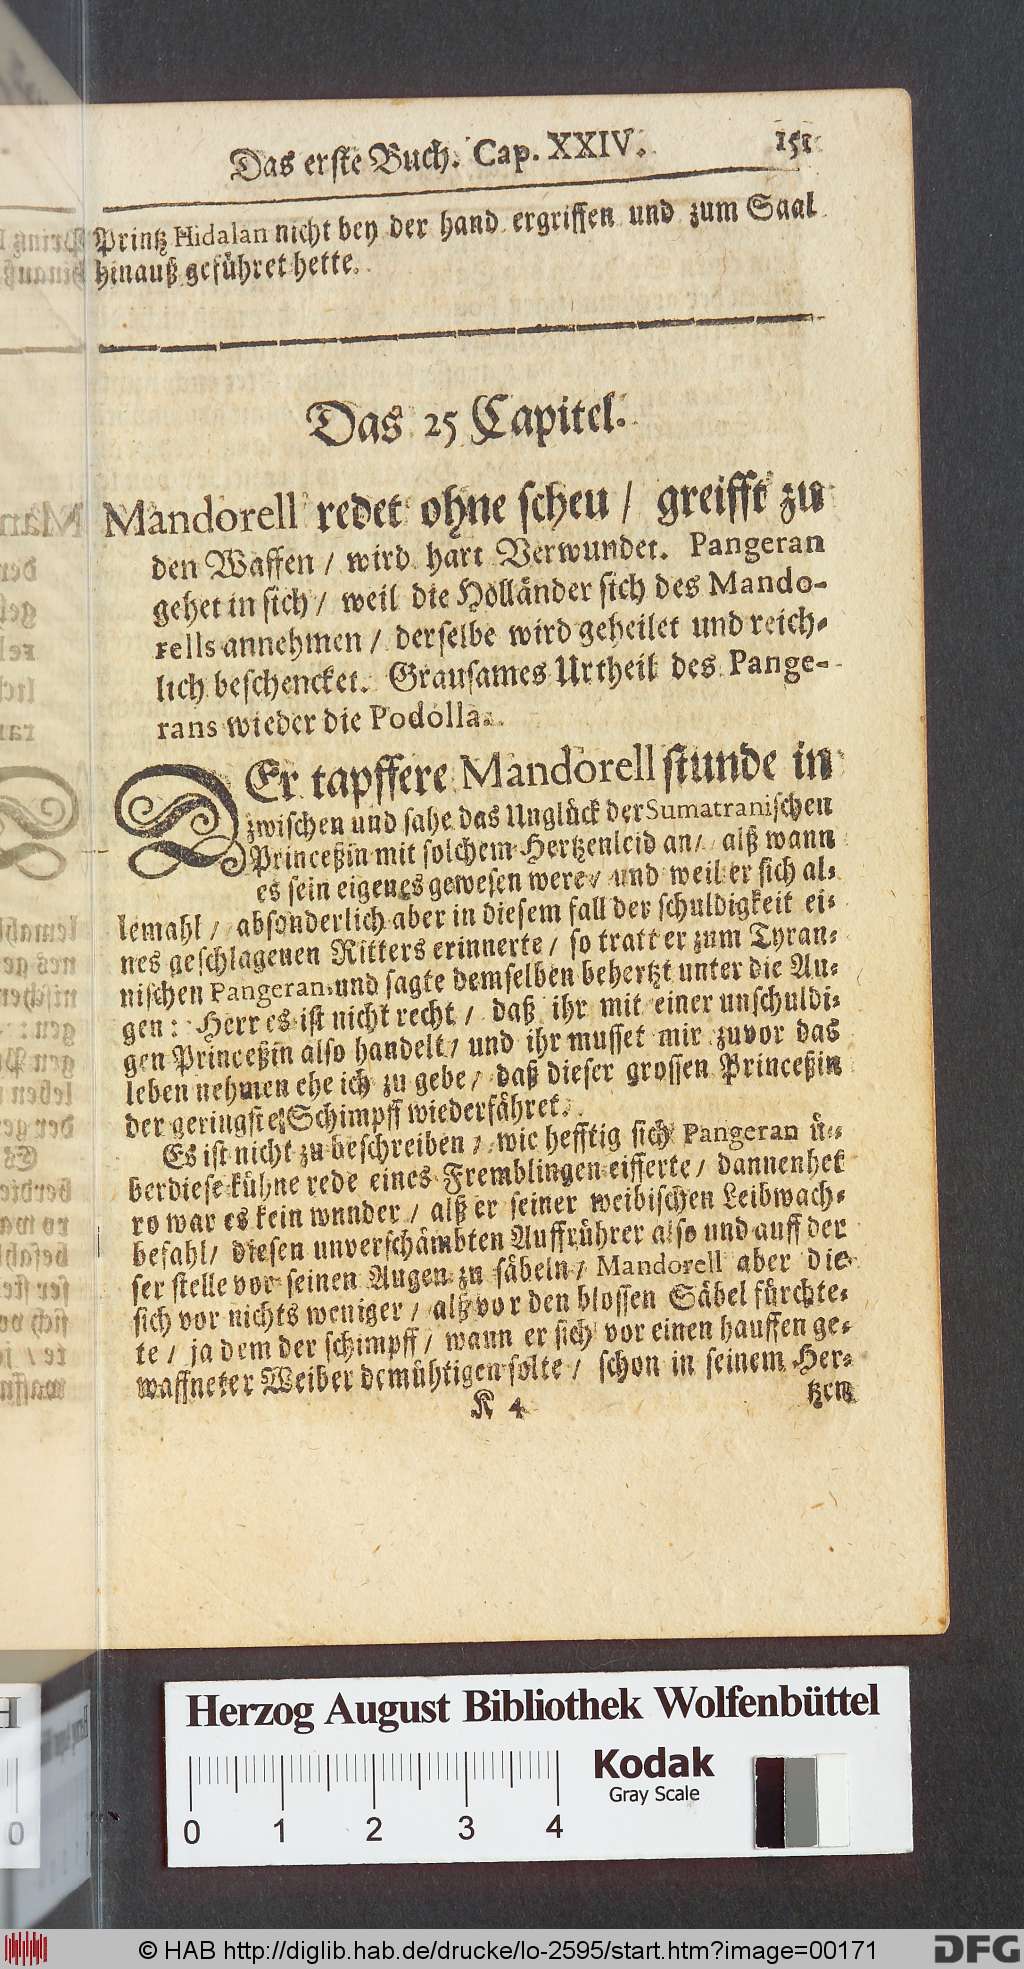 Das erste Buch. Cap. XXIV. 151
Printz Hidalan nicht bey der hand ergriffen und zum Saal
hinauß geführet hette.
Das 25 Capitel.
Mandorell redet ohne scheu / greifft zu
den Waffen / wird hart Verwundet. Pangeran
gehet in sich / weil die Holländer sich des Mando-
rells annehmen / derselbe wird geheilet und reich-
lich beschencket. Grausames Urtheil des Pange-
rans wieder die Podolla.
DEr tapffere Mandorell stunde in
zwischen und sahe das Unglück der Sumatranischen
Princeßin mit solchem Hertzenleid an / alß wann
es sein eigenes gewesen were / und weil er sich al-
lemahl / absonderlich aber in diesem fall der schuldigkeit ei-
nes geschlagenen Ritters erinnerte / so tratt er zum Tyran-
nischen Pangeran und sagte demselben behertzt unter die Au-
gen: Herr es ist nicht recht / daß ihr mit einer unschuldi-
gen Princeßin also handelt / und ihr musset mir zuvor das
leben nehmen ehe ich zu gebe / daß dieser grossen Princeßin
der geringste Schimpff wiederfähret.
Es ist nicht zu beschreiben / wie hefftig sich Pangeran ü-
ber diese kühne rede eines Fremblingen eifferte / dannenhet
ro war es kein wnnder / alß er seiner weibischen Leibwach-
befahl / diesen unverschämbten Auffrührer also und auff der
ser stelle vor seinen Augen zu säbeln / Mandorell aber die
sich vor nichts weniger / alß vor den blossen Säbel fürchte-
te / ja dem der schimpff / wann er sich vor einen hauffen ge-
waffneter Weiber demühtigen solte / schon in seinem Her-
K 4 tzen
Herzog August Bibliothek Wolfenbüttel
Kodak
Gray Scale
0 1 2 3 4
© HAB http://diglib.hab.de/drucke/lo-2595/start.htm?image=00171
DFG